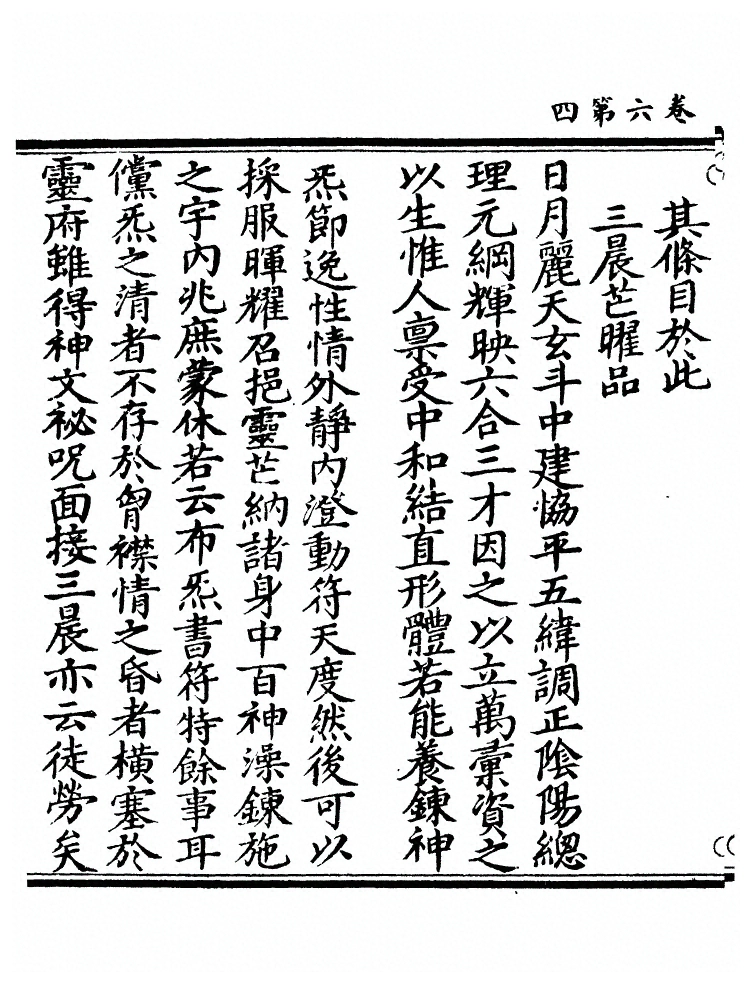 卷六第四
其條目於此
三晨芒曜品
日月麗天玄斗中建恊平五緯調正陰陽緫
理元綱輝映六合三才因之以立萬彙資之
以生惟人禀受中和結直形體若能養鍊神
炁節逸性情外靜内澄動符天度然後可以
採服暉耀召挹靈芒納諸身中百神澡鍊施
之宇内兆庶蒙休若云布炁書符特餘事耳
儻炁之清者不存於胷襟情之昏者橫塞於
靈府雖得神文祕呪面接三晨亦云徒勞矣